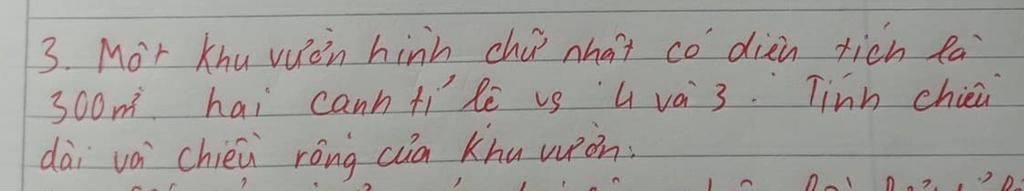 3. Một khu vườn hình chữ nhật có diện tích là
300m². hai cạnh tỉ lệ vs 4 và 3. Tính chiều
dài và chiều rộng của khu vườn.